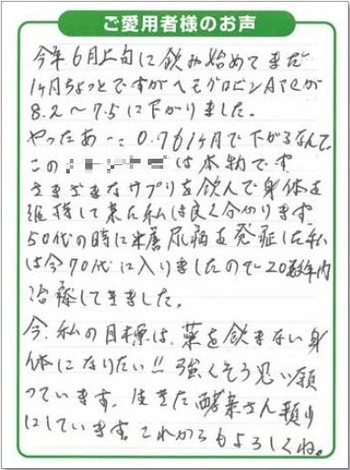 ご愛用者様のお声
今年6月上旬に飲み始めてまだ
1ヶ月ちょっとですがヘモグロビンA1Cが
8.2〜7.5に下がりました。
やったあー 0.7も1ヶ月で下がるなんて
この は本物です
さまざまなサプリを飲んで身体を
維持して来た私は良く分かります
50代の時に糖尿病を発症した私
は今70代に入りましたので20数年内
治療してきました。
今、私の目標は、薬を飲まない身
体になりたい!! 強くそう思い願
っています。生きた酵素さん頼り
にしています。これからもよろしくね。